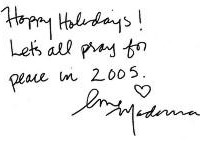 Happy Holidays!
Let's all pray for
peace in 2005.
Love Madonna